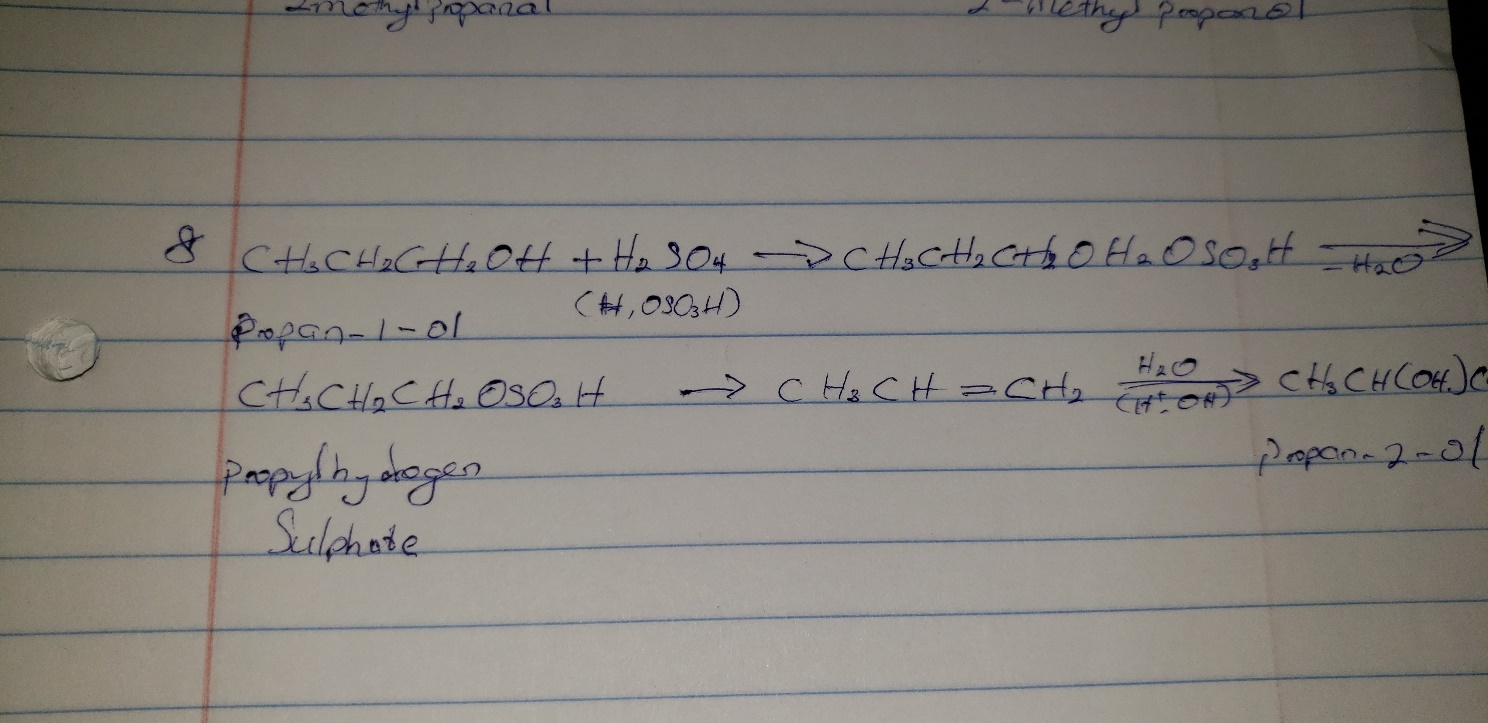 2methylpropanal 2-Methyl propanol
8 CH₃CH₂CH₂OH + H₂SO₄ → CH₃CH₂CH₂OH₂OSO₃H →
-H₂O
(H, OSO₃H)
Propan-1-ol
H₂O
CH₃CH₂CH₂OSO₃H → CH₃CH=CH₂ → CH₃CH(OH)C
(H⁺, OH)
propan-2-ol
Propylhydogen
Sulphate